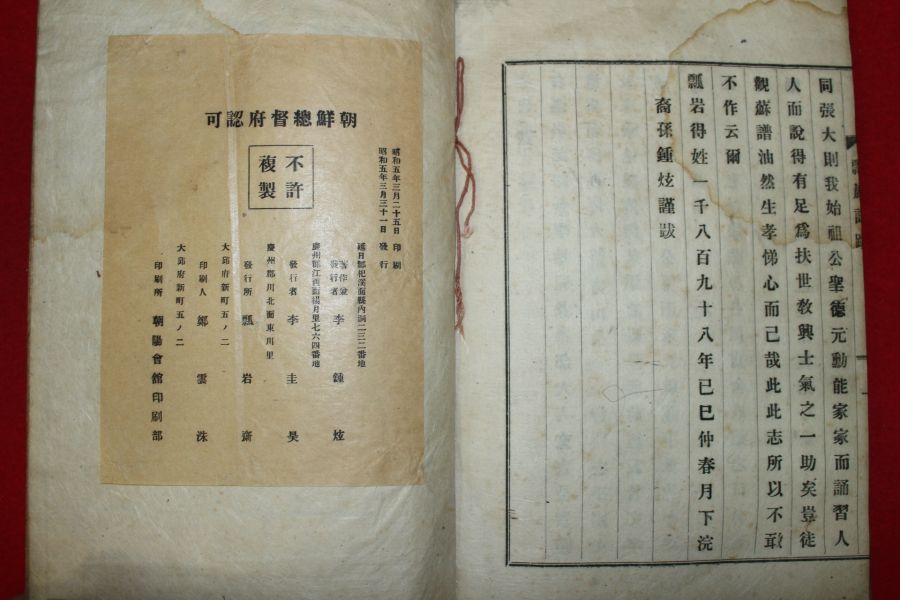 同張大則我始祖公聖德元勳能家家而誦習人
人而說得有足爲扶世敎興士氣之一助矣豈徒
觀蘇譜油然生孝悌心而已哉此此志所以不敢
不作云爾
瓢岩得姓一千八百九十八年己巳仲春月下浣
裔孫鍾炫謹跋
朝鮮總督府認可
不許
複製
昭和五年三月二十五日印刷
昭和五年三月三十一日發行
延日郡杞溪面縣內洞二三二番地
著作兼
發行者 李鍾炫
慶州郡江西面楊月里七六四番地
發行者 李圭昊
慶州郡川北面東川里
發行所 瓢岩齋
大邱府新町五ノ二
印刷人 鄭雲洙
大邱府新町五ノ二
印刷所 朝陽會館印刷部